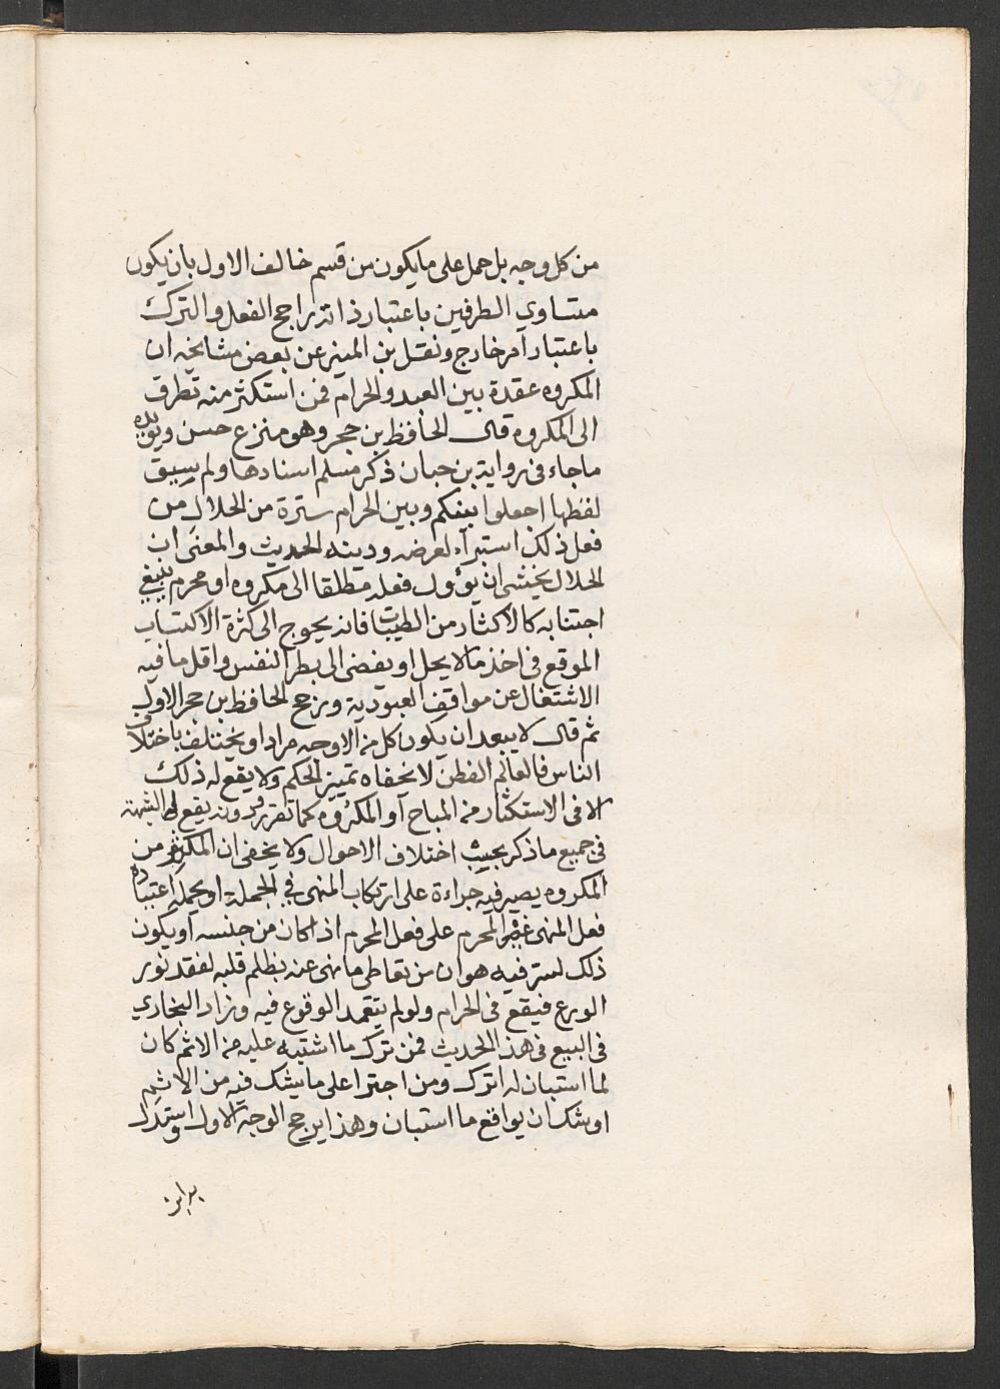 من كل وجه بل حمل على ما يكون من قسم خالف الاول بان يكون
متساوي الطرفين باعتبار ذاته راجح الفعل والترك
باعتبار امر خارج ونقل بن المنير عن بعض مشايخه ان
المكروه عقدة بين العبد والحرام فمن استكثر منه تطرق
الى المكروه قال الحافظ بن حجر وهو منزع حسن ويؤيده
ما جاء في رواية بن حبان ذكر مسلم اسنادها ولم يسبق
لفظها اجعلوا بينكم وبين الحرام سترة من الحلال من
فعل ذلك استبرآء لعرضه ودينه الحديث والمعنى ان
الحلال يخشى ان يؤول فعله مطلقا الى مكروه او محرم ينبغي
اجتنابه كالاكثار من الطيبات فانه يحوج الى كثرة الاكتساب
الموقع في اخذ ما لا يحل او يفضى الى بطر النفس واقل ما فيه
الاشتغال عن مواقف العبودية ورجح الحافظ بن حجر الاول
ثم قال لا يبعد ان يكون كل من الاوجه مرادا ويختلف باختلاف
الناس فالعالم الفطن لا يخفاه تمييز الحكم ولا يقع له ذلك
الا في الاستكثار من المباح آو المكروه كما تقرر ودونه يقع له الشبهة
في جميع ما ذكر بحيث اختلاف الاحوال ولا يخفى ان المكثر من
المكروه يصير فيه جراءة على ارتكاب المنهى في الجملة او يحمله اعتياده
فعل المنهى غير المحرم على فعل المحرم اذا كان من جنسه آو يكون
ذلك لستر فيه هو ان من تعاطى ما نهى عنه يظلم قلبه لفقد نور
الورع فيقع في الحرام ولو لم يتعمد الوقوع فيه وزاد البخاري
في البيع في هذا الحديث فمن ترك ما اشتبه عليه من الاثم كان
لما استبان له اترك ومن اجترا على ما يشك فيه من الاثم
اوشك ان يواقع ما استبان وهذا يرجح الوجه الاول واستدل
به ابن